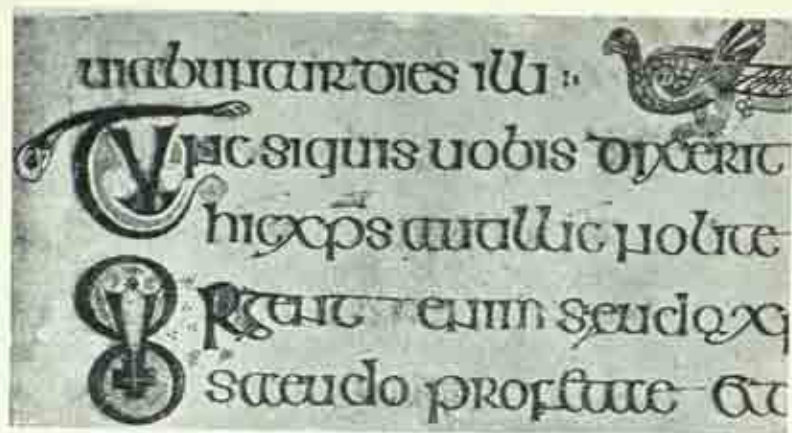 uiabuntur dies illi :
Tunc siquis uobis dixerit
hicxps autillic nolite
Surgent enim seudoxp
profetae et